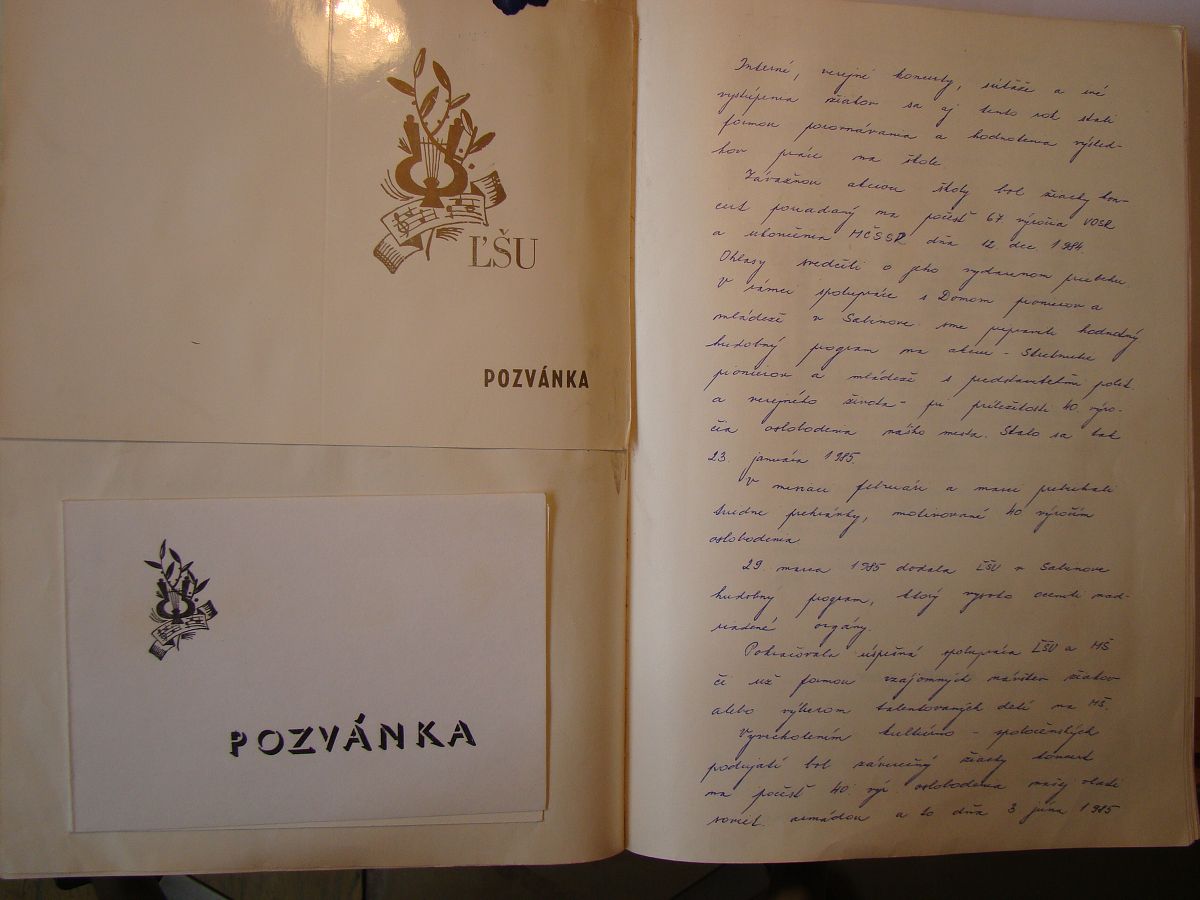 ĽŠU
POZVÁNKA
POZVÁNKA
Interné, verejné koncerty, súťaže a iné
vystúpenia žiakov sa aj tento rok stali
formou porovnávania a hodnotenia výsled-
kov práce na škole
Závažnou akciou školy bol žiacky kon-
cert poriadaný na počesť 67. výročia VOSR
a ukončenia MČSSP dňa 12. dec 1984.
Ohlasy svedčili o jeho vydarenom priebehu
V rámci spolupráce s Domom pionierov a
mládeže v Sabinove sme pripravili hodnotný
hudobný program na akciu - Stretnutie
pionierov a mládeže s predstaviteľmi polit.
a verejného života - pri príležitosti 40. výro-
čia oslobodenia nášho mesta. Stalo sa tak
23. januára 1985.
V mesiaci februári a marci prebiehali
triedne prehrávky, motivované 40 výročím
oslobodenia
29. marca 1985 dodala ĽŠU v Sabinove
hudobný program, ktorý vysoko ocenili nad-
riadené orgány.
Pokračovala úspešná spolupráca ĽŠU a MŠ
či už formou vzájomných návštev žiakov
alebo výberom talentovaných detí na MŠ.
Vyvrcholením kultúrno - spoločenských
podujatí bol záverečný žiacky koncert
na počesť 40. výr. oslobodenia našej vlasti
soviet. armádou a to dňa 3 júna 1985